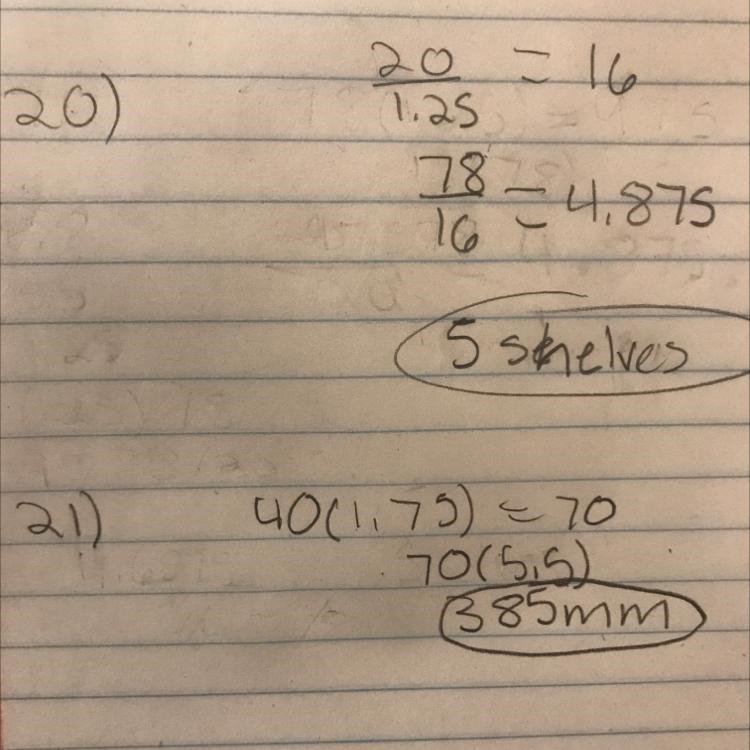 20) 20/1.25 = 16
78/16 = 4.875
5 shelves
21) 40(1.75) = 70
70(5.5)
385mm